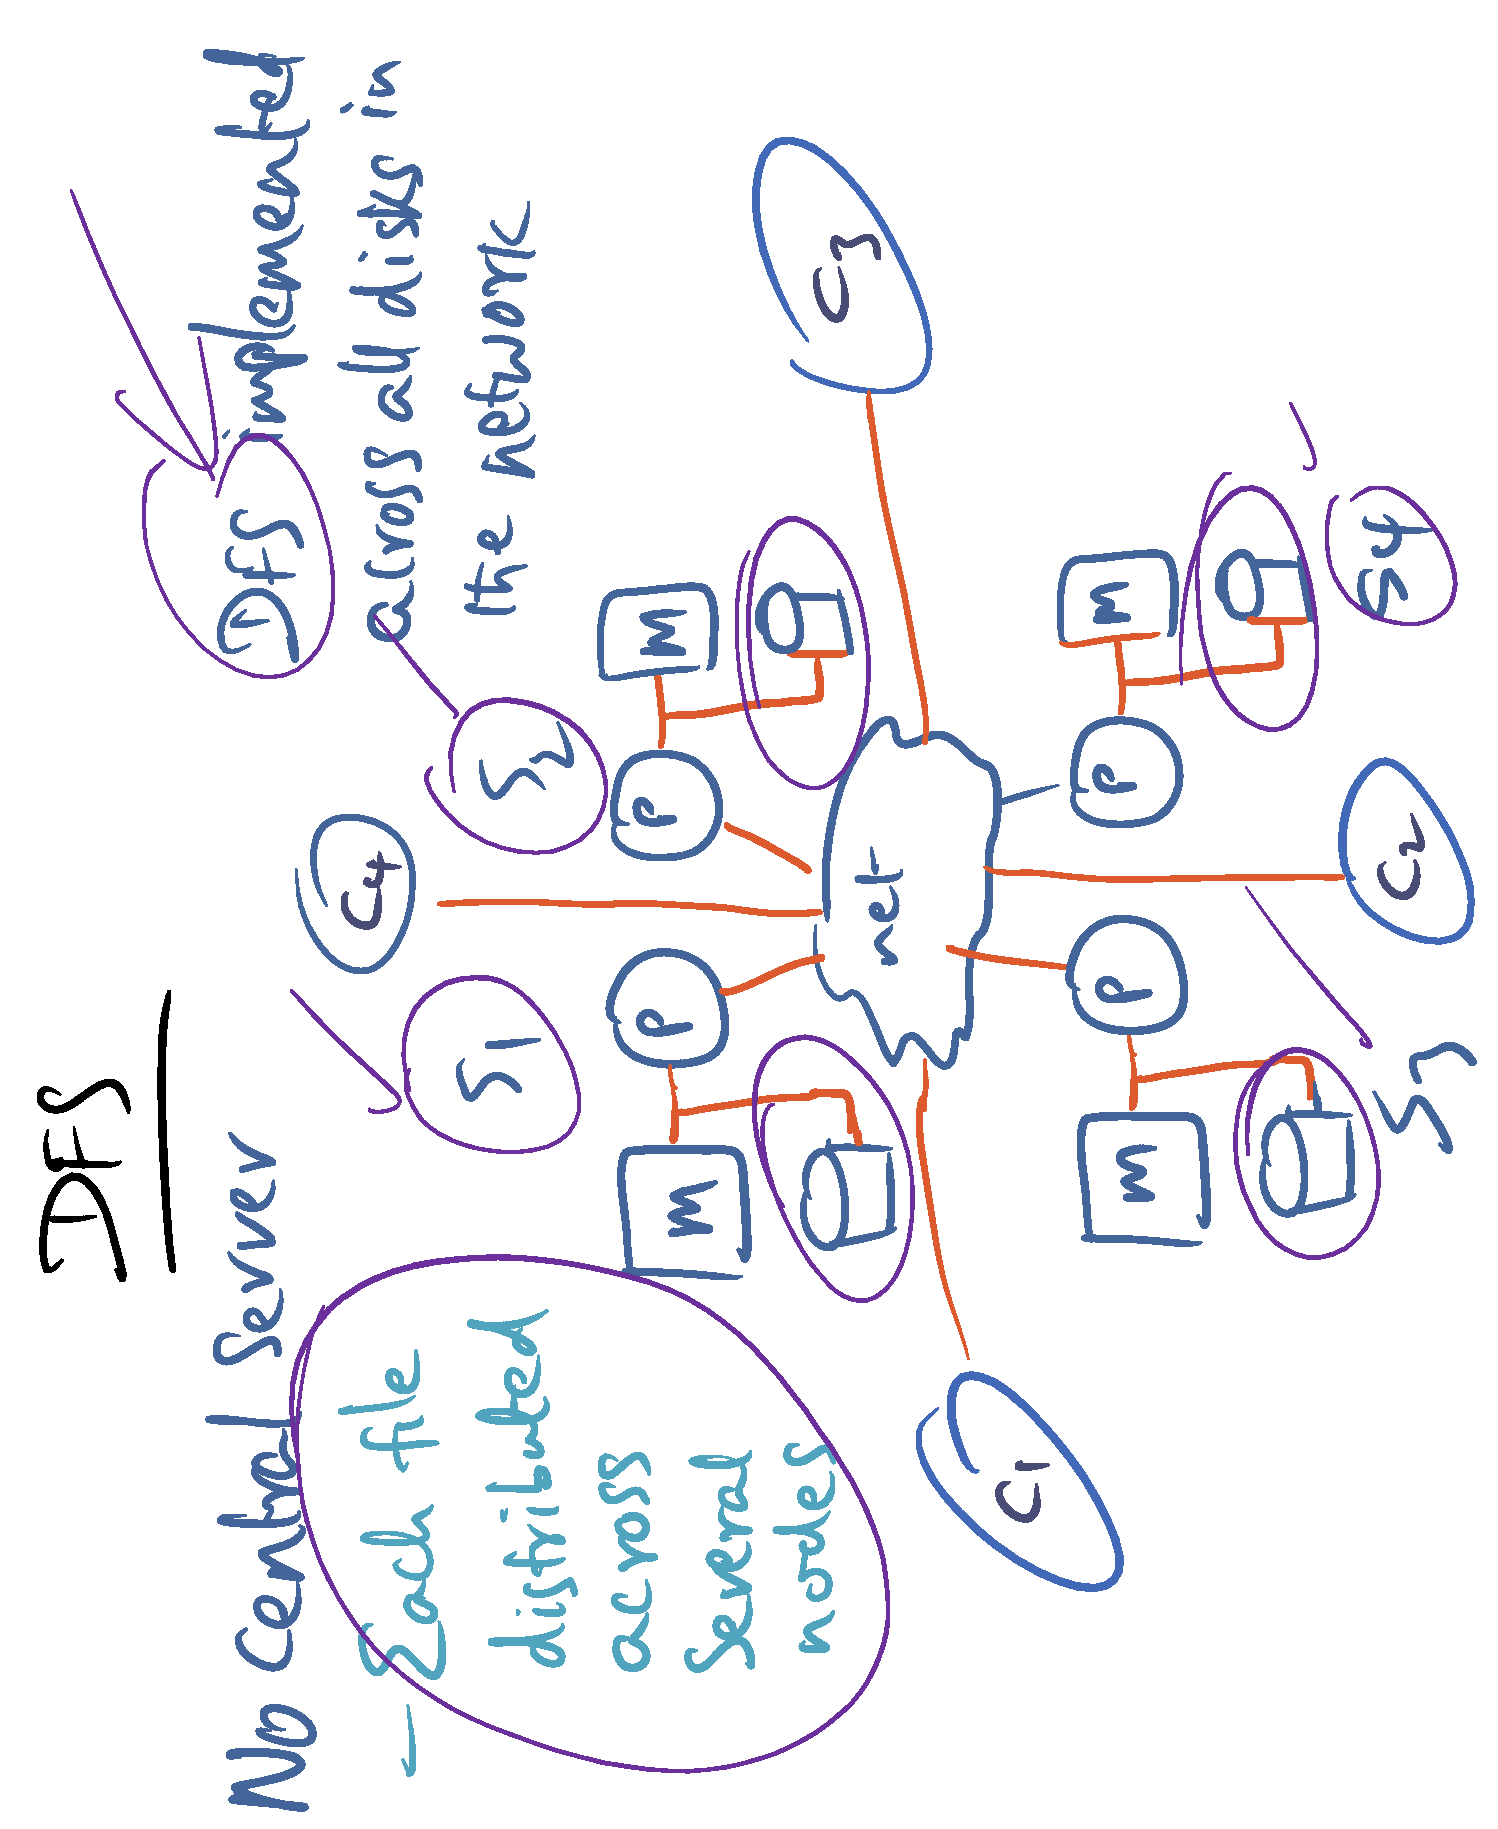 DFS
No Central Server
- Each file
distributed
across
several
nodes
DFS implemented
across all disks in
the network
C4
S1
S2
P
P
M
M
net
C1
C3
P
P
M
M
S3
C2
S4